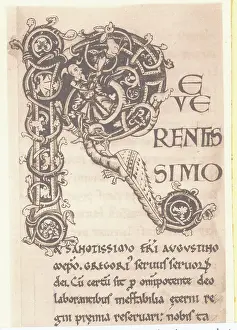 R E
VE
RENTIS
SIMO
& SANCTISSIMO FRI AUGUSTINO
coepo. GREGORI' seruus seruor'
dei. Cū certū sit p omnipotente deo
laborantibus ineffabilia eterni re
gni premia reseruari: nobis ta